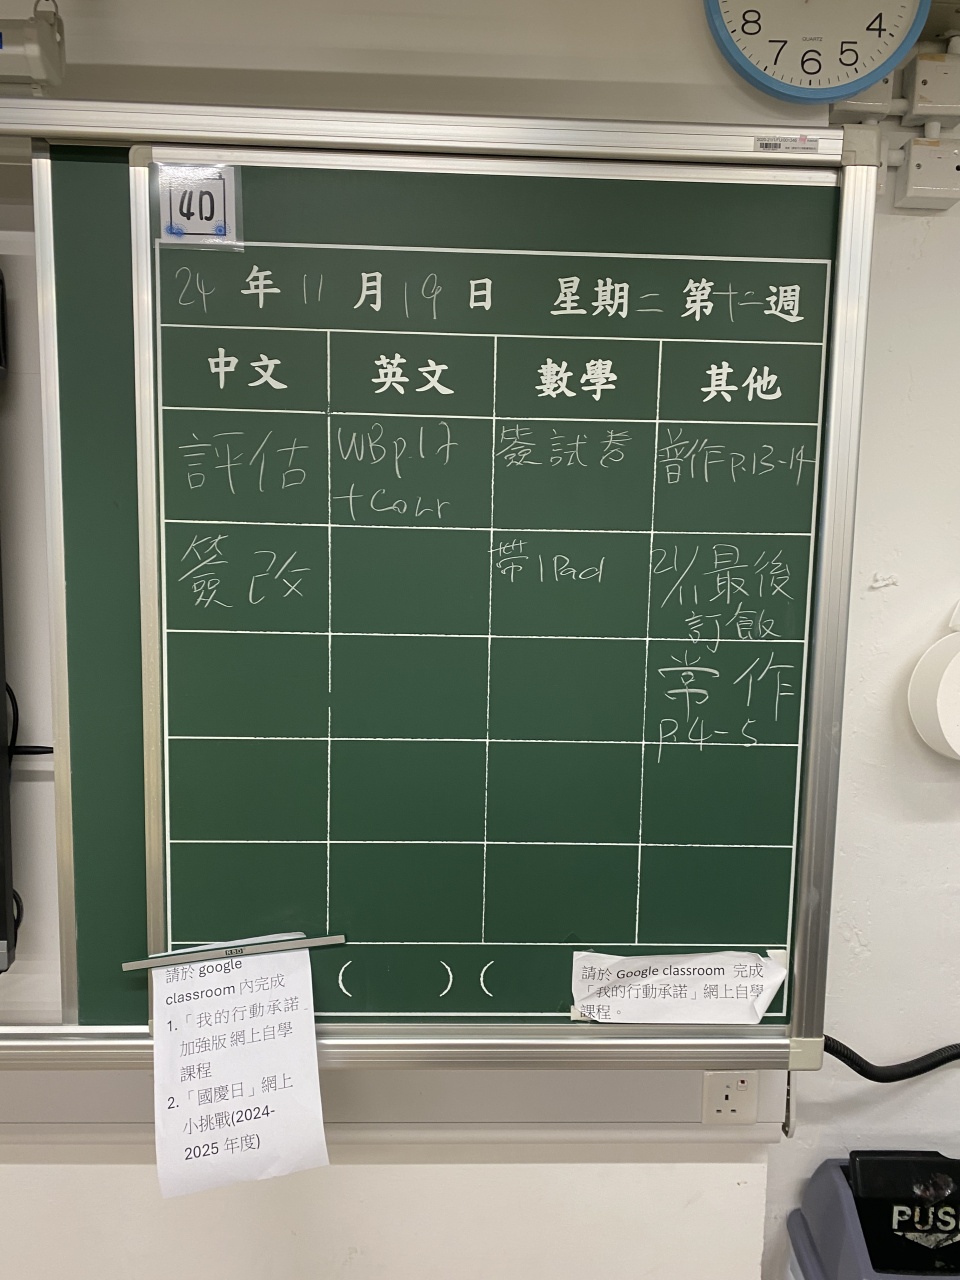 8 7 6 5 4
QUARTZ
4D
24 年 11 月 19 日 星期二 第十二週
中文 英文 數學 其他
評估
WB p.17
+ Corr
簽試卷
普作 p.13-14
簽改
帶 iPad
21/11 最後
訂飯
常作
p.4-5
( ) (
請於 google
classroom 內完成
1.「我的行動承諾
加強版 網上自學
課程
2.「國慶日」網上
小挑戰(2024-
2025 年度)
請於 Google classroom 完成
「我的行動承諾」網上自學
課程。
PUS